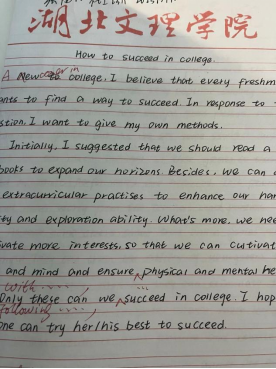 湖北文理学院
How to succeed in college.
A Newcomer in college, I believe that every freshm
ants to find a way to succeed. In response to
stion, I want to give my own methods.
Initially, I suggested that we should read a
books to expand our horizons. Besides, we can
extracurricular practises to enhance our han
ity and exploration ability. What's more, we nee
ivate more interests, so that we can cutivat
and mind and ensure physical and mental he
with
Only these can we succeed in college. I hop
following
one can try her/his best to succeed.